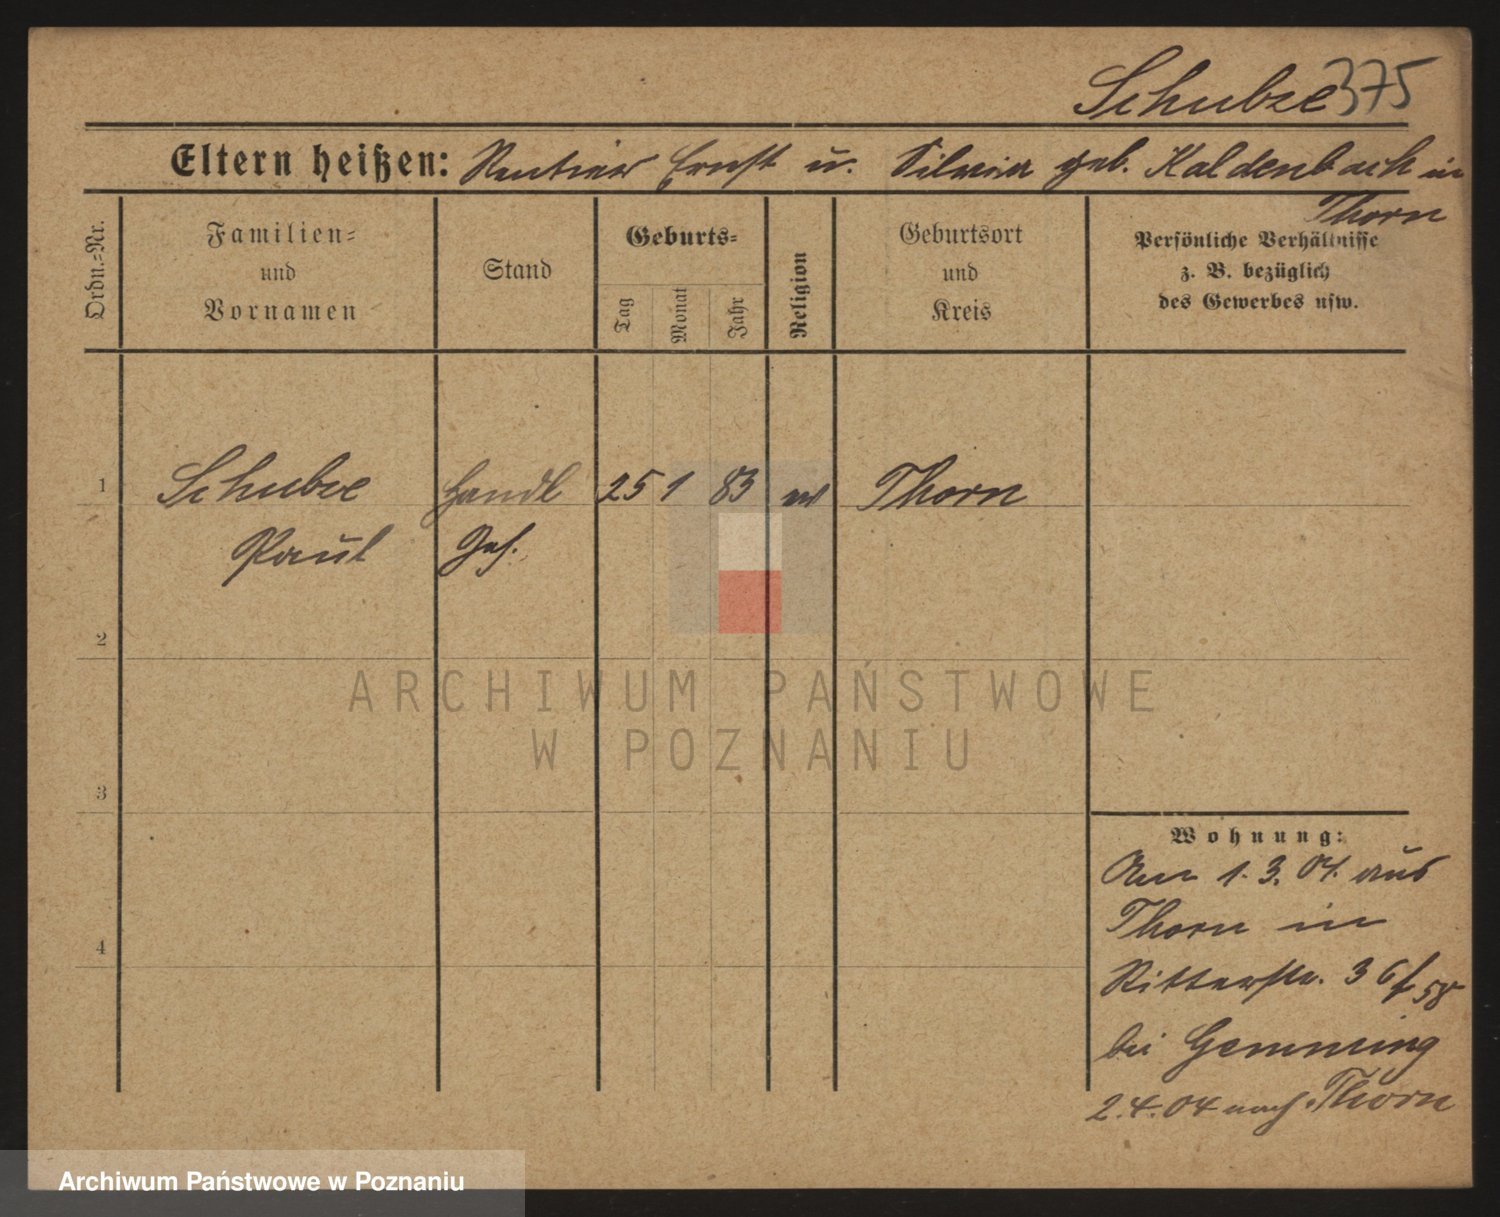 Schulze 375
Eltern heißen: Rentier Ernst u. Silvia geb. Kaldenbach in
Thorn
Ordn.=Nr.
Familien=
und
Vornamen
Stand
Geburts=
Tag
Monat
Jahr
Religion
Geburtsort
und
Kreis
Persönliche Verhältnisse
z. B. bezüglich
des Gewerbes usw.
1 Schulze Handl 25 1 83 ev Thorn
Paul Geh.
2
3
4
Wohnung:
Am 1.3.04. aus
Thorn in
Ritterstr. 36
bei Gemming
2.4.04 nach Thorn
ARCHIWUM PAŃSTWOWE
W POZNANIU
Archiwum Państwowe w Poznaniu